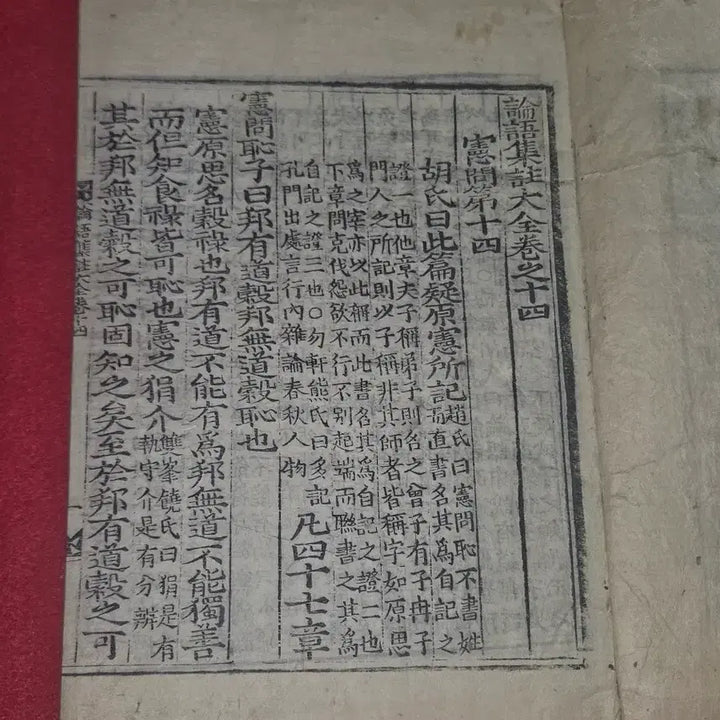 論語集註大全卷之十四
憲問第十四
胡氏曰此篇疑原憲所記
趙氏曰憲問恥不書姓
而直書名其爲自記之
證一也他章夫子稱弟子則名之曾子有子冉子
門人之所記則以子稱非其師者皆稱字如原思
爲之宰亦以此稱而此書名其爲自記之證二也
下章問克伐怨欲不行不別起端而聯書之其爲
自記之證三也○勿軒熊氏曰多記
孔門出處言行內雜論春秋人物
凡四十七章
憲問恥子曰邦有道穀邦無道穀恥也
憲原思名穀祿也邦有道不能有爲邦無道不能獨善
而但知食祿皆可恥也憲之狷介
雙峯饒氏曰狷是有
執守介是有分辨
其於邦無道穀之可恥固知之矣至於邦有道穀之可
論語集註大全卷十四